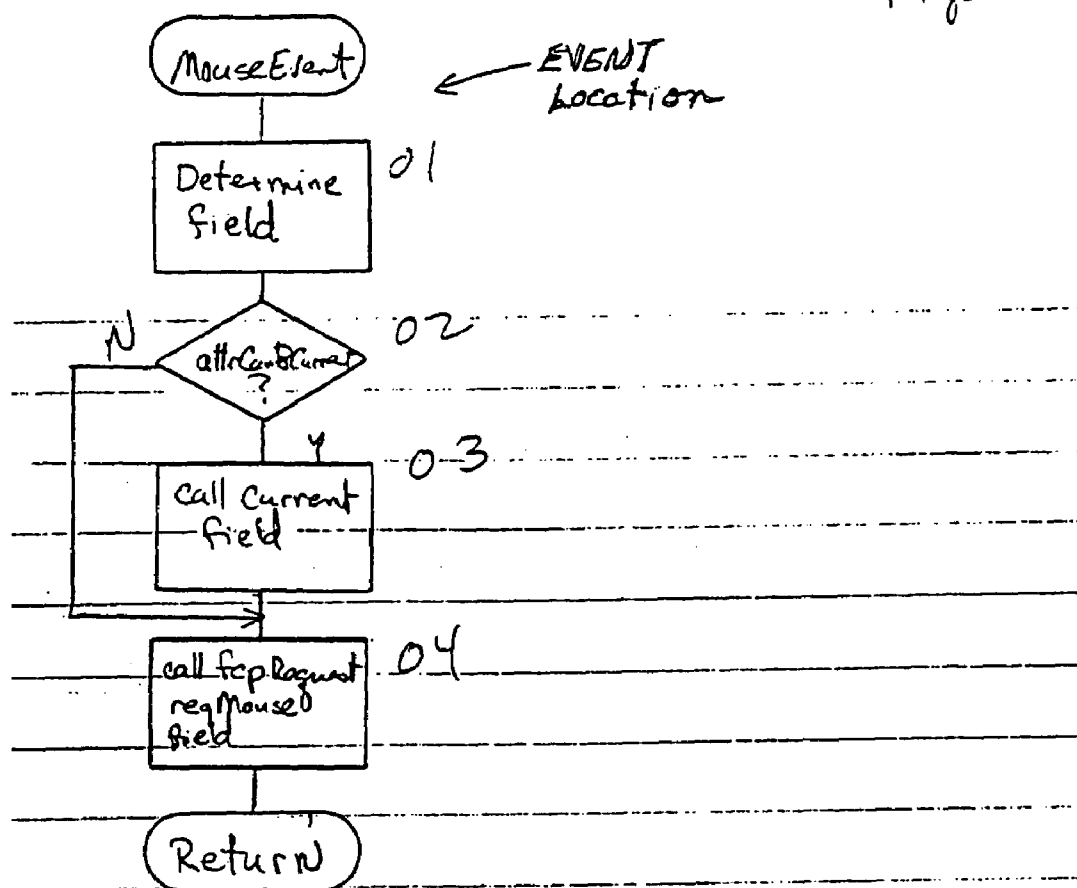 MouseEvent
EVENT
Location
Determine
field
01
02
N
attrCanBCurrent
?
Y
03
call current
field
call fcpRequest
reqMouse
field
04
Return